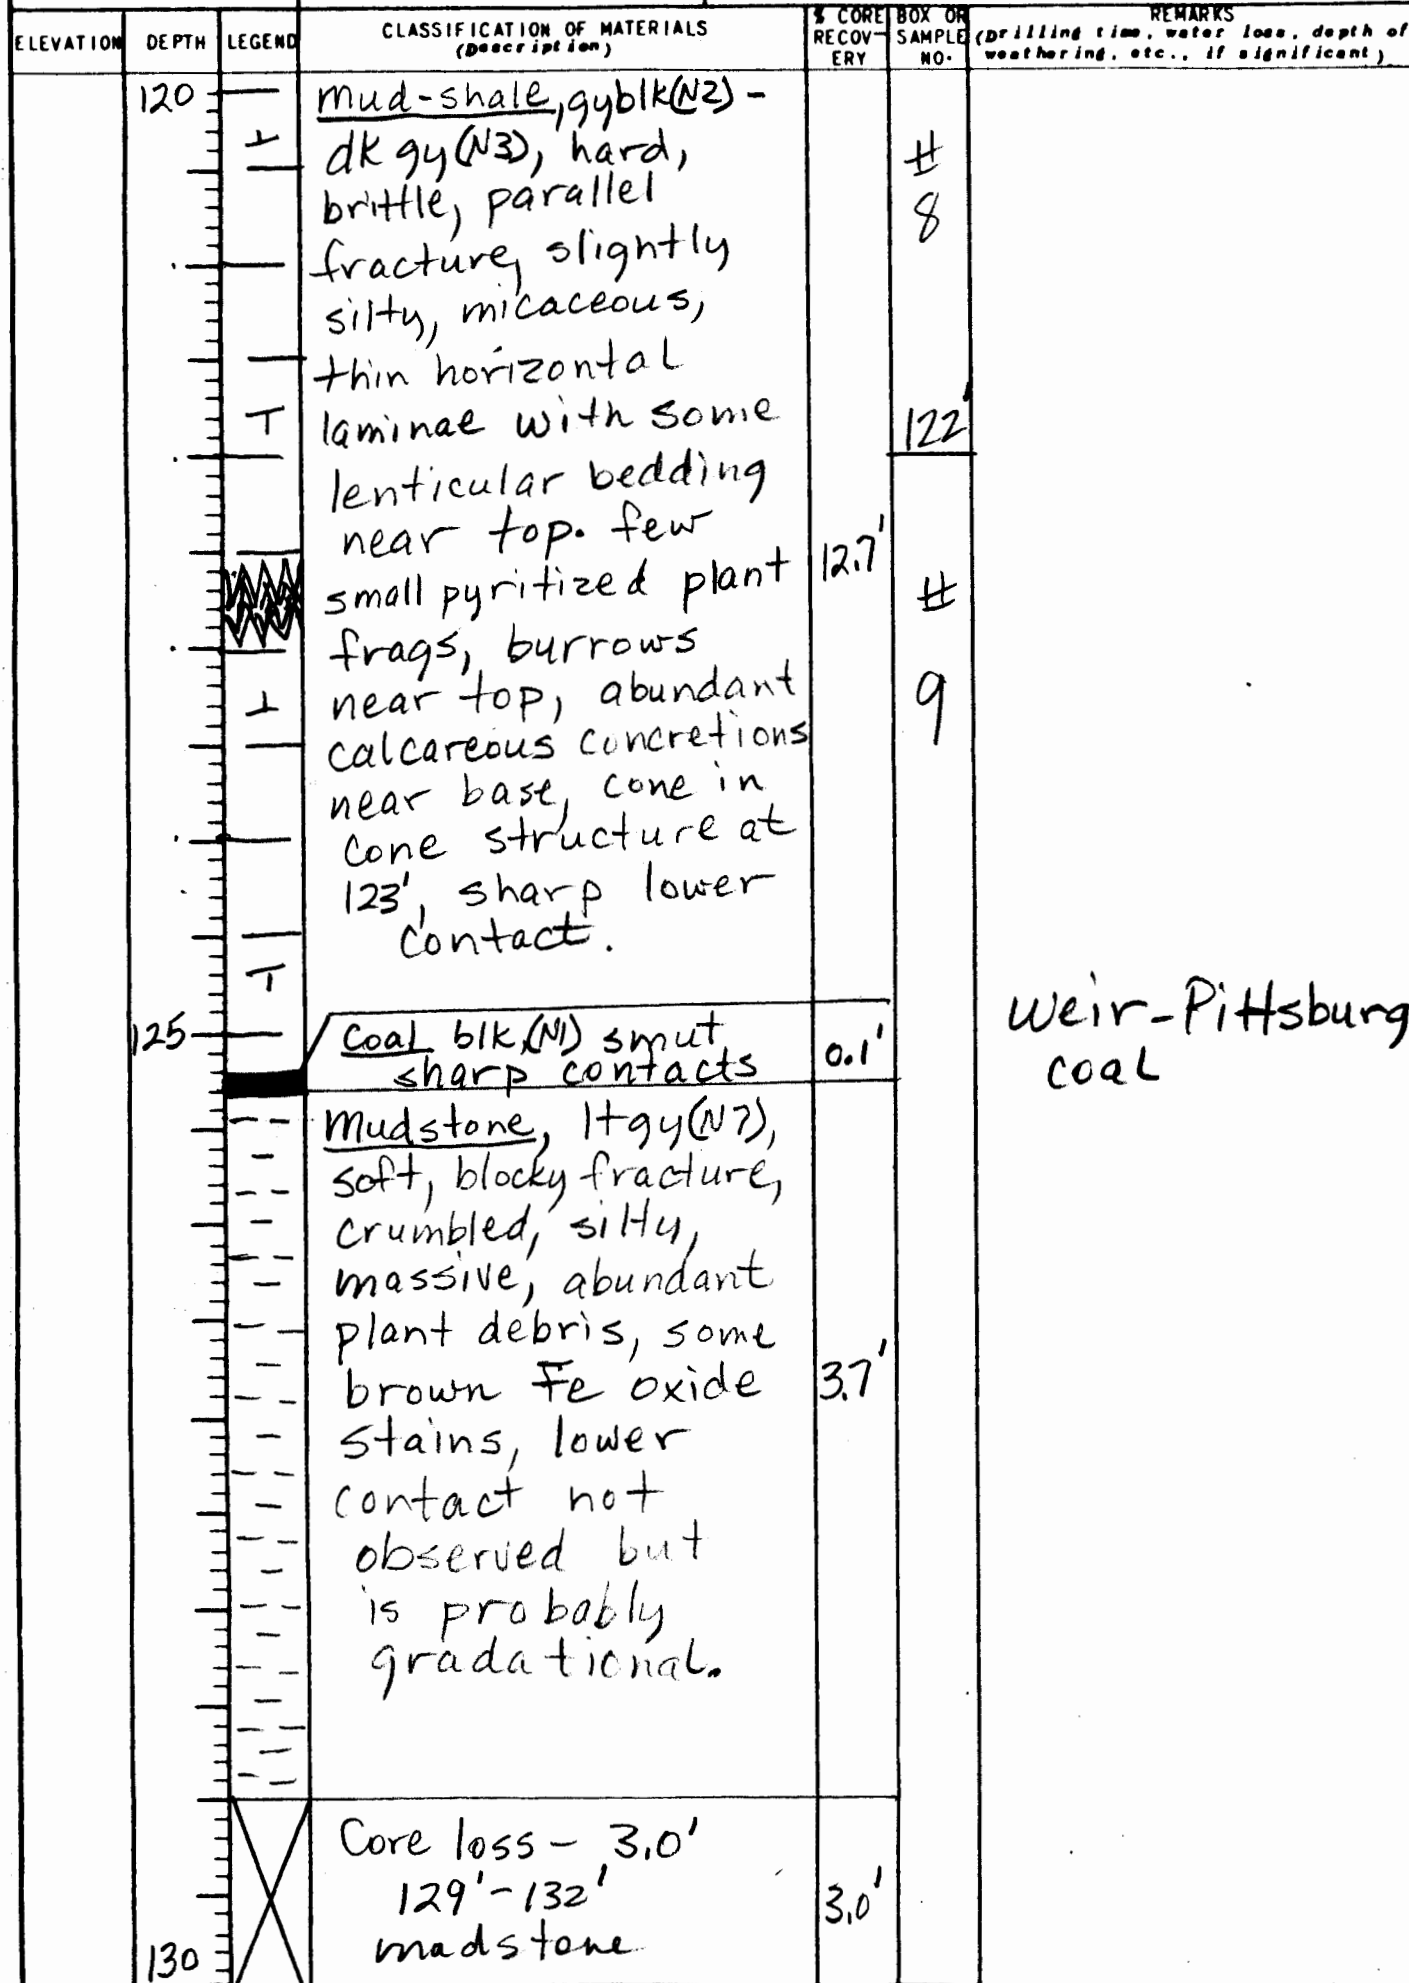 ELEVATION DEPTH LEGEND CLASSIFICATION OF MATERIALS (Description) % CORE RECOV- ERY BOX OR SAMPLE NO. REMARKS (Drilling time, water loss, depth of weathering, etc., if significant)
120
Mud-shale, gyblk(N2) -
dk gy(N3), hard,
brittle, parallel
fracture, slightly
silty, micaceous,
thin horizontal
laminae with some
lenticular bedding
near top. few
small pyritized plant
frags, burrows
near top, abundant
calcareous concretions
near base, cone in
cone structure at
123', sharp lower
contact.
12.7'
#
8
122'
#
9
125
Coal blk,(N1) smut
sharp contacts
0.1'
Weir-Pittsburg
coal
Mudstone, ltgy(N7),
soft, blocky fracture,
crumbled, silty,
massive, abundant
plant debris, some
brown Fe oxide
stains, lower
contact not
observed but
is probably
gradational.
3.7'
Core loss - 3.0'
129'-132'
madstone
3.0'
130